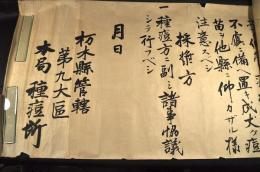 不虞ニ備ヘ置キ成丈ケ痘
苗ヲ他縣ニ仰ーカサル様
注意スヘシ
採漿方
一種痘方ニ副シ諸事協議
シテ行フベシ
月日
栃木縣管轄
第九大區
本局種痘所